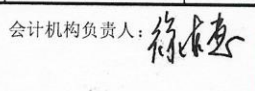 会计机构负责人：徐志惠